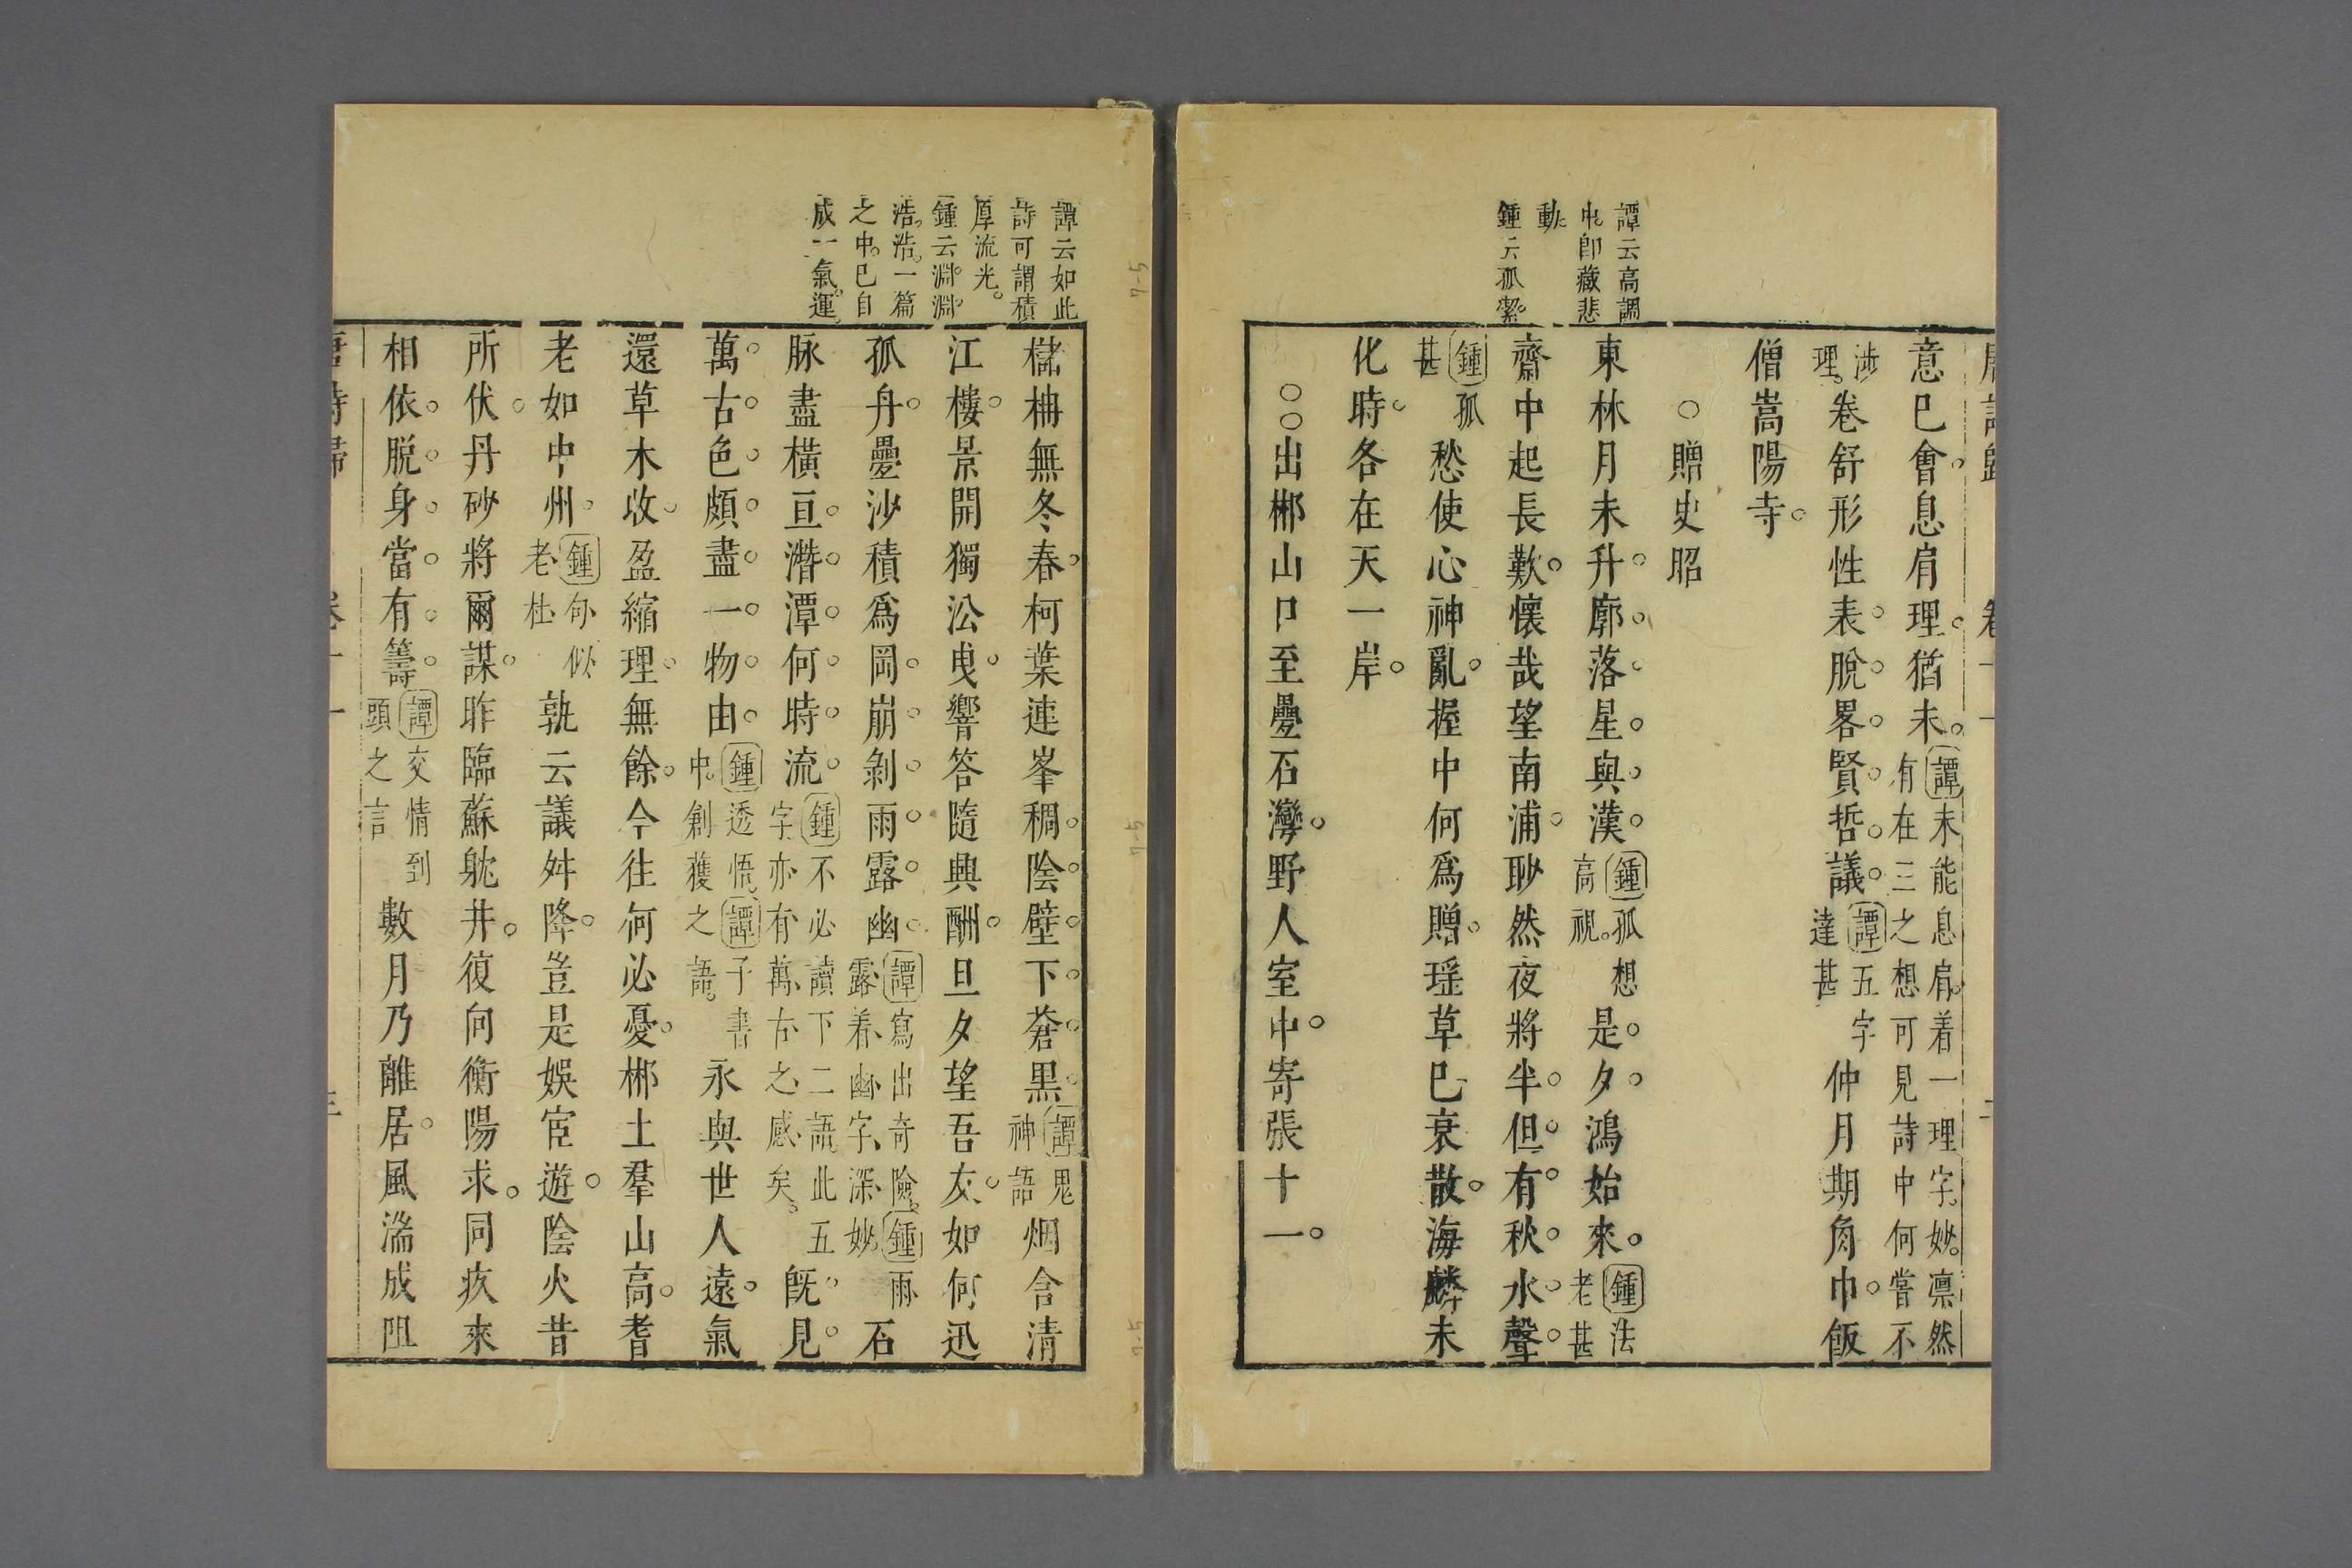 唐詩歸 卷十一 二
譚云高調
中卽藏悲
動
鍾云孤潔
意已會息肩理猶未譚未能息肩着一理字妙凛然有在三之想可見詩中何嘗不
渉理卷舒形性表脫畧賢哲議譚五字達甚仲月期角巾飯
僧嵩陽寺
○贈史昭
東林月未升廓落星與漢鍾孤想高視是夕鴻始來鍾法老甚
齋中起長歎懷哉望南浦眇然夜將半但有秋水聲
鍾孤甚愁使心神亂握中何爲贈瑶草已衰散海鱗未
化時各在天一岸
○○出郴山口至疊石灣野人室中寄張十一
譚云如此
詩可謂積
厚流光
鍾云淵淵
浩浩一篇
之中已自
成一氣運
櫧柟無冬春柯葉連峯稠陰壁下蒼黑譚鬼神語烟含清
江樓景開獨㳂曵響答隨興酬旦夕望吾友如何迅
孤舟疊沙積爲岡崩剝雨露幽譚寫出奇險鍾雨露着幽字深妙石
脉盡橫亘潛潭何時流鍾不必讀下二語此五字亦有萬古之感矣旣見
萬古色頗盡一物由鍾透悟中創獲之譚子書語永與世人遠氣
還草木收盈縮理無餘今往何必憂郴土羣山高耆
老如中州鍾句似老杜孰云議舛降豈是娛宦遊陰火昔
所伏丹砂將爾謀昨臨蘇躭井復向衡陽求同疚來
相依脫身當有籌譚交情到頭之言數月乃離居風湍成阻
唐詩歸 卷十一 三